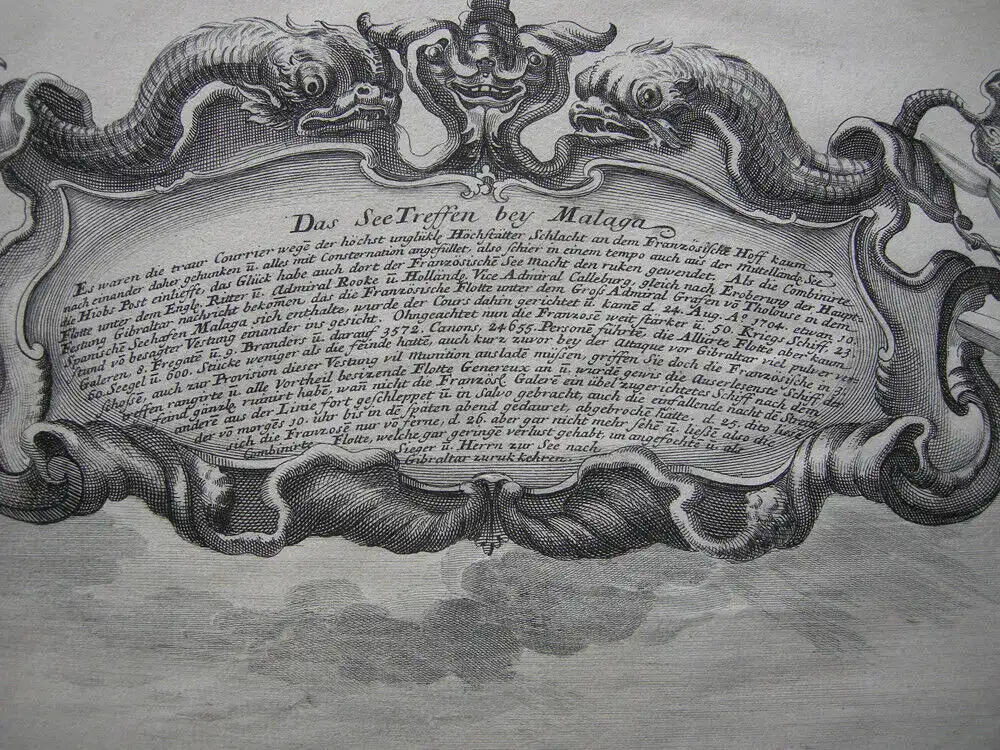 Das SeeTreffen bey Malaga
Es waren die traur Courrier wegē der höchst unglükle Höchstätter Schlacht an dem Französischē Hoff kaum
nach einander daher gehunken ū. alles mit Consternation angefüllet, also schier in einem tempo auch aus der Mittelländ. See
die Hiobs Post einlieffe, das Glück habe auch dort der Französischē See Macht den ruken gewendet. Als die Combinirte
Flotte unter dem Engle. Ritter ū. Admiral Rooke ū Holländ. Vice Admiral Calleburg, gleich nach Eroberung des Haupt
Festung Gibraltar nachricht bekomen das die Französische Flotte unter dem Groß Admiral Grafen vō Tholouse an dem
Spanischē Seehafen Malaga sich enthalte, wurde der Cours dahin gerichtet ū. kamē d. 24. Aug. Aº 1704. etwan 10.
stund vō besagter Vestung einander ins gesicht. Ohngeachtet nun die Franzosē weit stärker ū. 50. Kriegs Schiff, 23
Galeren, 8. Fregatē ū. 9. Branders ū. darauf 3572. Canons, 24655. Personē führtē, die Alliirte Flotte aber kaum
60. Seegel ū. 600. Stücke weniger als die feinde hattē, auch kurz zuvor bey der Attaque vor Gibraltar viel pulver ver-
schoßē, auch zur Provision dieser Vestung vil Munition ausladē müßen, griffen Sie doch die Französische in
treffen rangirte ū. alle Vortheil besizende Flotte Genereux an ū. wurdē gewis die Auserlesenste Schiff der
feind gänzl. ruinirt habē, wañ nicht die Französ. Galerē ein übel zugerichtetes Schiff nach dem
andere aus der Linie fort geschleppet ū in Salvo gebracht, auch die einfallende nacht dē Streit,
der vō morgēs 10. uhr bis in dē späten abend gedauret, abgebrochē hätte. d. 25. dito ließē
sich die Franzosē nur vō ferne, d. 26. aber gar nicht mehr sehē ū. ließē also die
Combinirte Flotte, welche gar geringē verlust gehabt, un angefochtē ū. als
Sieger ū. Herrn zur See nach
Gibraltar zuruk kehren.